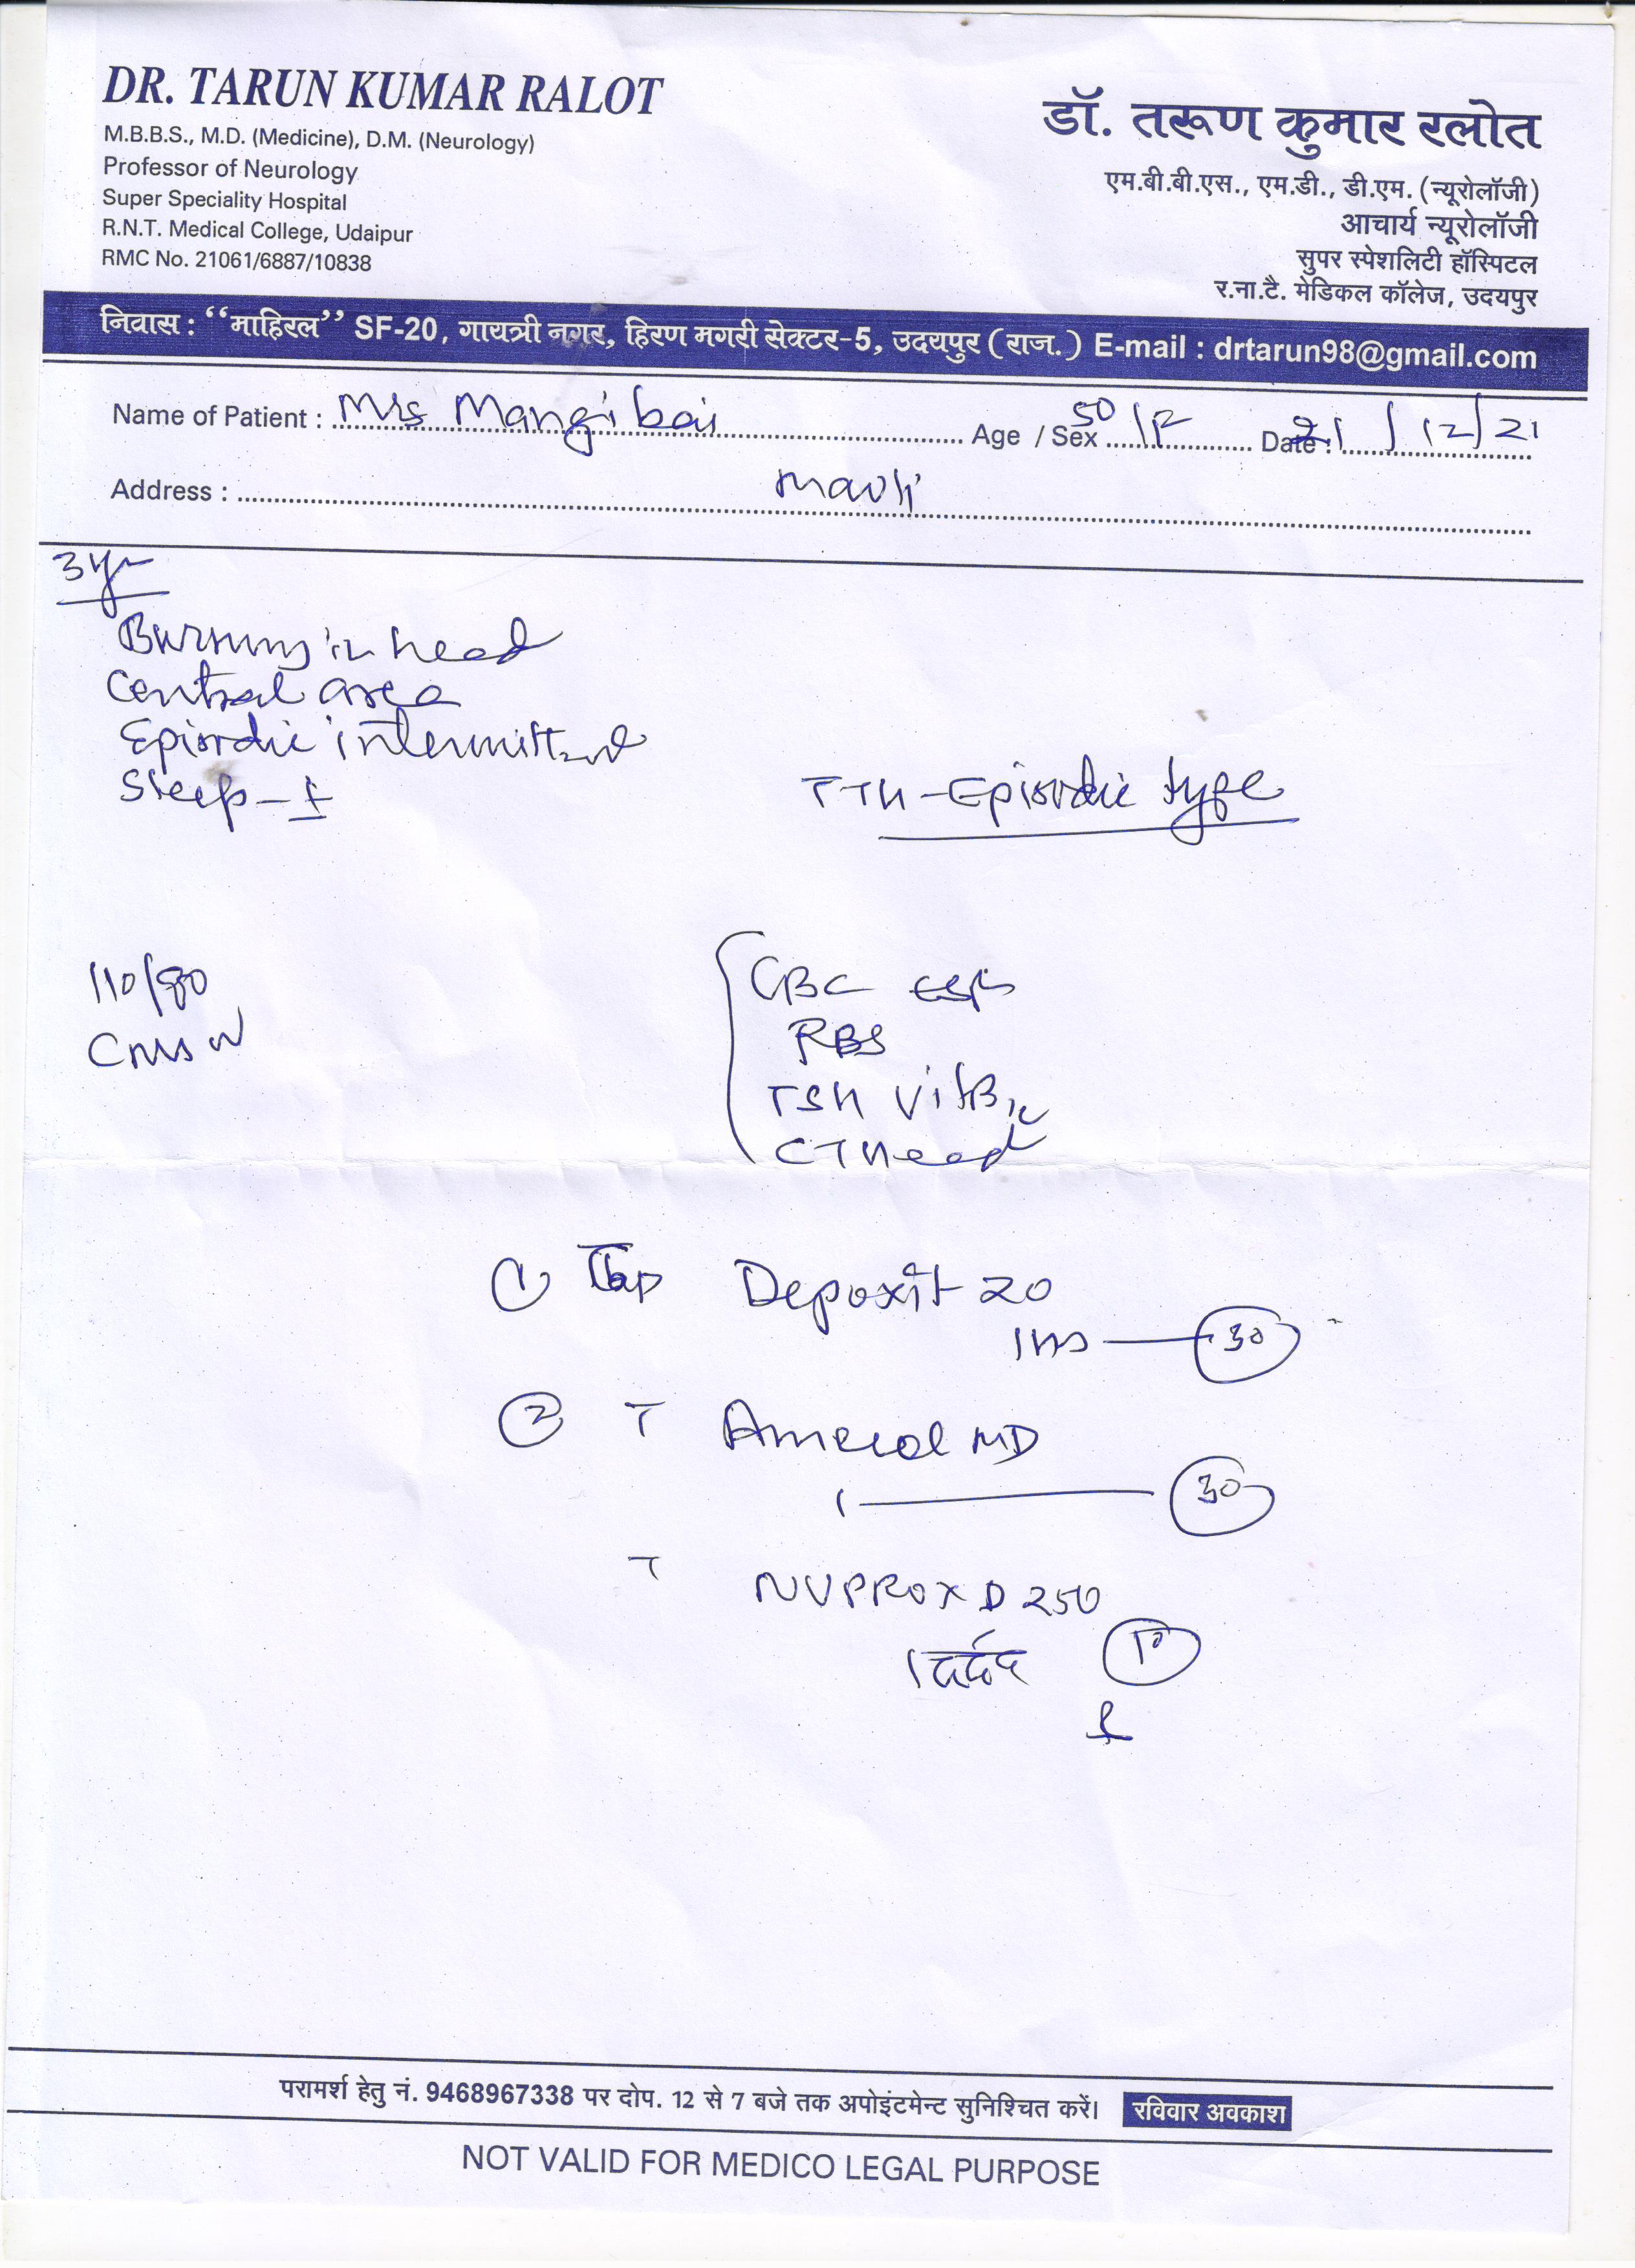 DR. TARUN KUMAR RALOT
M.B.B.S., M.D. (Medicine), D.M. (Neurology)
Professor of Neurology
Super Speciality Hospital
R.N.T. Medical College, Udaipur
RMC No. 21061/6887/10838
डॉ. तरूण कुमार रलोत
एम.बी.बी.एस., एम.डी., डी.एम. (न्यूरोलॉजी)
आचार्य न्यूरोलॉजी
सुपर स्पेशलिटी हॉस्पिटल
र.ना.टै. मेडिकल कॉलेज, उदयपुर
निवास : “माहिरल” SF-20, गायत्री नगर, हिरण मगरी सेक्टर-5, उदयपुर (राज.) E-mail : drtarun98@gmail.com
Name of Patient : Mrs Mangi bai Age / Sex 50/F Date : 21/12/21
Address : mavli
3yr
Burning in head
Central area
Episodic intermittent
Sleep - ±
TTH - Episodic type
110/80
CNS N
CBC ESR
RBS
TSH Vit B12
CT head
① Deposit 20
1HS 30
② T MD
1 30
T NUPROX D 250
1 दर्द 10
परामर्श हेतु नं. 9468967338 पर दोप. 12 से 7 बजे तक अपोइंटमेन्ट सुनिश्चित करें। रविवार अवकाश
NOT VALID FOR MEDICO LEGAL PURPOSE